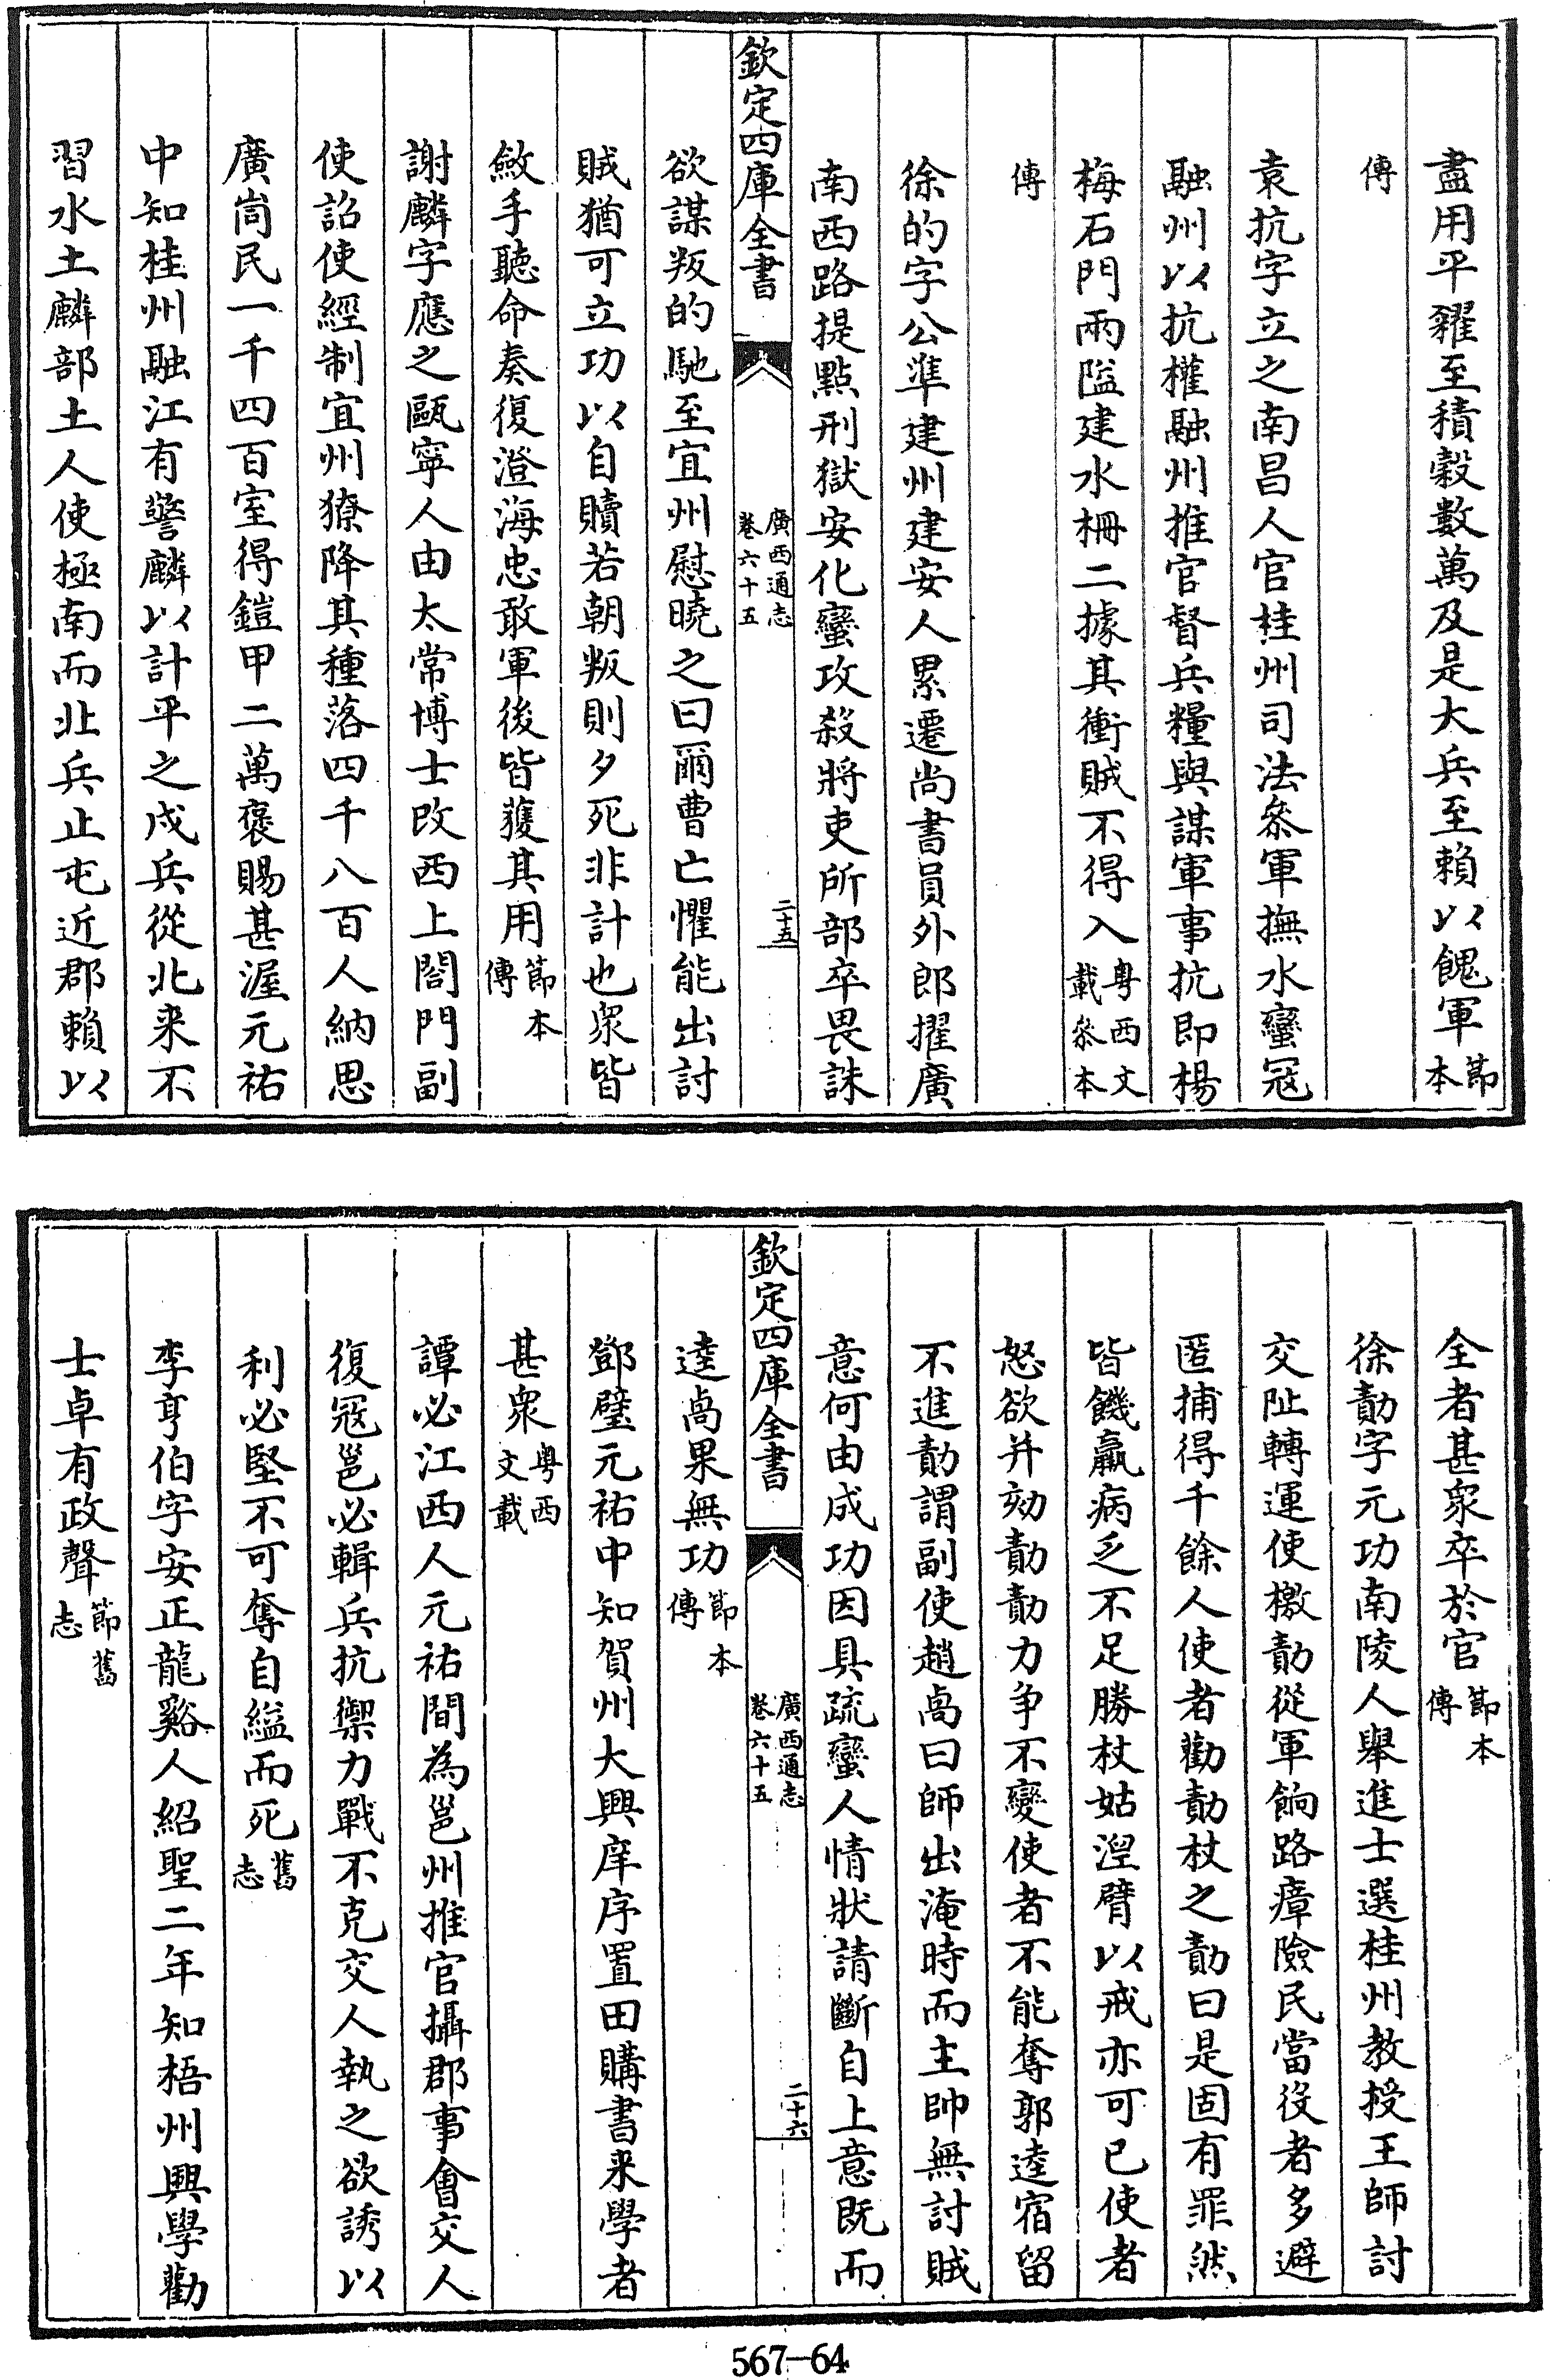 盡用平糴至積穀數萬及是大兵至賴以餽軍節本
傳
袁抗字立之南昌人官桂州司法叅軍撫水蠻冦
融州以抗權融州推官督兵糧與謀軍事抗即楊
梅石門兩隘建水柵二據其衝賊不得入粤西文載叅本
傳
徐的字公準建州建安人累遷尚書員外郎擢廣
南西路提點刑獄安化蠻攻殺將吏所部卒畏誅
欽定四庫全書
廣西通志
卷六十五
二十五
欲謀叛的馳至宜州慰曉之曰爾曹亡懼能出討
賊猶可立功以自贖若朝叛則夕死非計也衆皆
斂手聽命奏復澄海忠敢軍後皆獲其用節本傳
謝麟字應之甌寧人由太常博士改西上閤門副
使詔使經制宜州獠降其種落四千八百人納思
廣峝民一千四百室得鎧甲二萬褒賜甚渥元祐
中知桂州融江有警麟以計平之戍兵從北来不
習水土麟部土人使極南而北兵止屯近郡賴以
全者甚衆卒於官節本傳
徐勣字元功南陵人舉進士選桂州教授王師討
交阯轉運使檄勣從軍餉路瘴險民當役者多避
匿捕得千餘人使者勸勣杖之勣曰是固有罪然
皆饑羸病乏不足勝杖姑湼臂以戒亦可已使者
怒欲并劾勣勣力争不變使者不能奪郭逵宿留
不進勣謂副使趙卨曰師出淹時而主帥無討賊
意何由成功因具疏蠻人情狀請斷自上意既而
欽定四庫全書
廣西通志
卷六十五
二十六
逵卨果無功節本傳
鄧璧元祐中知賀州大興庠序置田購書来學者
甚衆粤西文載
譚必江西人元祐間為邕州推官攝郡事會交人
復冦邕必輯兵抗禦力戰不克交人執之欲誘以
利必堅不可奪自縊而死舊志
李亨伯字安正龍谿人紹聖二年知梧州興學勸
士卓有政聲節舊志
567-64